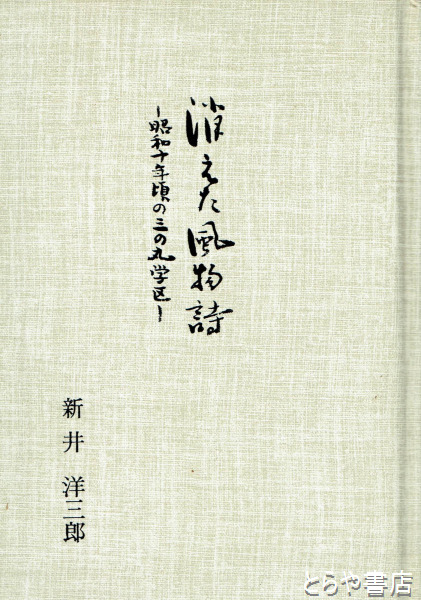 消えた風物詩
－昭和十年頃の三の丸学区－
新井洋三郎
とらや書店